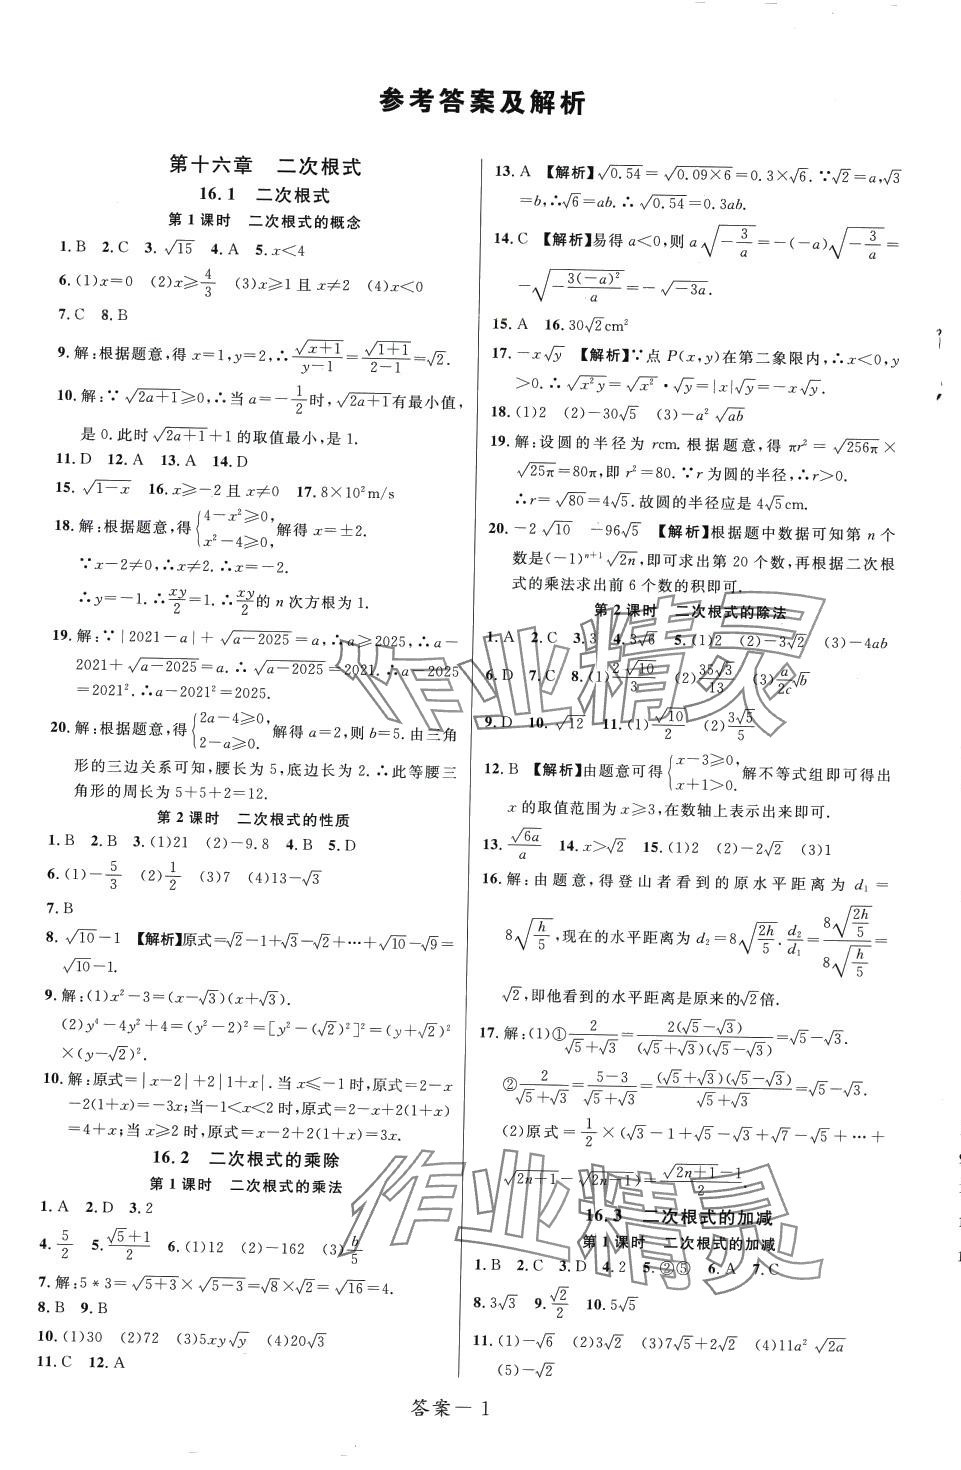 参考答案及解析
第十六章　二次根式
16.1　二次根式
第1课时　二次根式的概念
1. B　2. C　3. √15　4. A　5. x<4
6. (1)x=0　(2)x≥4/3　(3)x≥1且x≠2　(4)x<0
7. C　8. B
9. 解:根据题意,得x=1,y=2,∴√(x+1)/(y−1)=√(1+1)/(2−1)=√2.
10. 解:∵√(2a+1)≥0,∴当a=−1/2时,√(2a+1)有最小值,
是0.此时√(2a+1)+1的取值最小,是1.
11. D　12. A　13. A　14. D
15. √(1−x)　16. x≥−2且x≠0　17. 8×10²m/s
18. 解:根据题意,得{4−x²≥0, x²−4≥0,解得x=±2.
∵x−2≠0,∴x≠2.∴x=−2.
∴y=−1.∴xy/2=1.∴xy/2的n次方根为1.
19. 解:∵|2021−a|+√(a−2025)=a,∴a≥2025,∴a−
2021+√(a−2025)=a.∴√(a−2025)=2021.∴a−2025
=2021².∴a−2021²=2025.
20. 解:根据题意,得{2a−4≥0, 2−a≥0.解得a=2,则b=5.由三角
形的三边关系可知,腰长为5,底边长为2.∴此等腰三
角形的周长为5+5+2=12.
第2课时　二次根式的性质
1. B　2. B　3. (1)21　(2)−9.8　4. B　5. D
6. (1)−5/3　(2)1/2　(3)7　(4)13−√3
7. B
8. √10−1　【解析】原式=√2−1+√3−√2+⋯+√10−√9=
√10−1.
9. 解:(1)x²−3=(x−√3)(x+√3).
(2)y⁴−4y²+4=(y²−2)²=[y²−(√2)²]²=(y+√2)²
×(y−√2)².
10. 解:原式=|x−2|+2|1+x|.当x≤−1时,原式=2−x
−2(1+x)=−3x;当−1<x<2时,原式=2−x+2(1+x)
=4+x;当x≥2时,原式=x−2+2(1+x)=3x.
16.2　二次根式的乘除
第1课时　二次根式的乘法
1. A　2. D　3. 2
4. 5/2　5. (√5+1)/2　6. (1)12　(2)−162　(3)b/5
7. 解:5*3=√(5+3)×√(5−3)=√8×√2=√16=4.
8. B　9. B
10. (1)30　(2)72　(3)5xy√y　(4)20√3
11. C　12. A
13. A　【解析】√0.54=√(0.09×6)=0.3×√6.∵√2=a,√3
=b,∴√6=ab.∴√0.54=0.3ab.
14. C　【解析】易得a<0,则a√(−3/a)=−(−a)√(−3/a)=
−√(−3(−a)²/a)=−√(−3a).
15. A　16. 30√2cm²
17. −x√y　【解析】∵点P(x,y)在第二象限内,∴x<0,y
>0.∴√(x²y)=√x²·√y=|x|√y=−x√y.
18. (1)2　(2)−30√5　(3)−a²√ab
19. 解:设圆的半径为rcm.根据题意,得πr²=√(256π)×
√(25π)=80π,即r²=80.∵r为圆的半径,∴r>0.
∴r=√80=4√5.故圆的半径应是4√5cm.
20. −2√10　−96√5　【解析】根据题中数据可知第n个
数是(−1)ⁿ⁺¹√(2n),即可求出第20个数,再根据二次根
式的乘法求出前6个数的积即可.
第2课时　二次根式的除法
1. A　2. C　3. 3　4. 3√6　5. (1)2　(2)−3√2　(3)−4ab
6. D　7. C　8. (1)2√10/3　(2)35√3/13　(3)a/2c√b
9. D　10. √12　11. (1)√10/2　(2)3√5/5
12. B　【解析】由题意可得{x−3≥0, x+1>0.解不等式组即可得出
x的取值范围为x≥3,在数轴上表示出来即可.
13. √(6a)/a　14. x>√2　15. (1)2　(2)−2√2　(3)1
16. 解:由题意,得登山者看到的原水平距离为d₁=
8√(h/5),现在的水平距离为d₂=8√(2h/5).d₂/d₁=8√(2h/5)/8√(h/5)=
√2,即他看到的水平距离是原来的√2倍.
17. 解:(1)①2/(√5+√3)=2(√5−√3)/((√5+√3)(√5−√3))=√5−√3.
②2/(√5+√3)=(5−3)/(√5+√3)=(√5+√3)(√5−√3)/(√5+√3)=√5−√3.
(2)原式=1/2×(√3−1+√5−√3+√7−√5+⋯+
√(2n+1)−√(2n−1))=(√(2n+1)−1)/2.
16.3　二次根式的加减
第1课时　二次根式的加减
1. B　2. C　3. D　4. 2　5. ②⑤　6. A　7. C
8. 3√3　9. √2/2　10. 5√5
11. (1)−√6　(2)3√2　(3)7√5+2√2　(4)11a²√(2a)
(5)−√2
答案－1
作业精灵
作业精灵